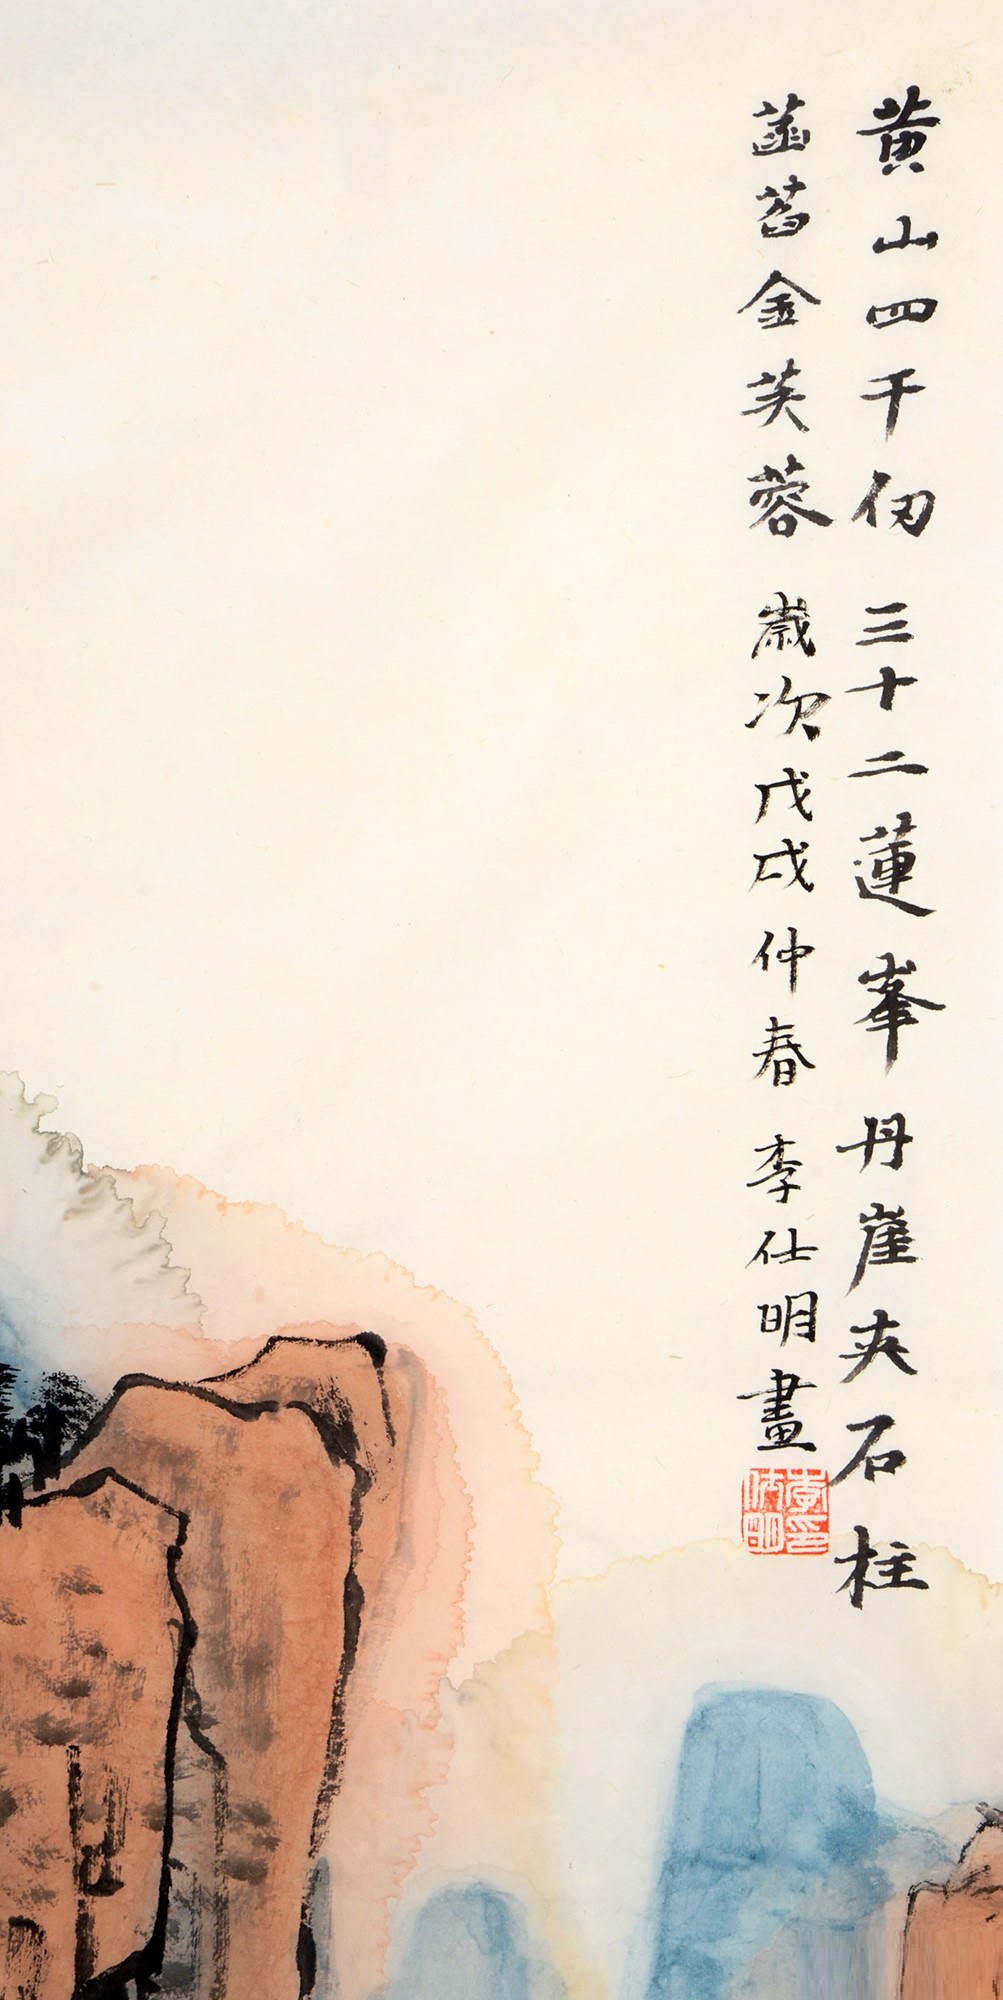 黄山四千仞三十二蓮峯丹崖夾石柱
菡萏金芙蓉歲次戊戌仲春李仕明畫
李仕明印